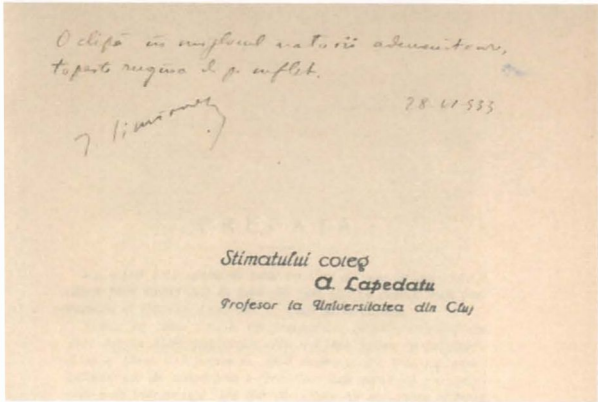 O clipă în mijlocul naturii ademenitoare,
topește rugina de pe suflet.
28-VI-933
I Simionescu
PREFAȚA
Stimatului coleg
A. Lapedatu
Profesor la Universitatea din Cluj